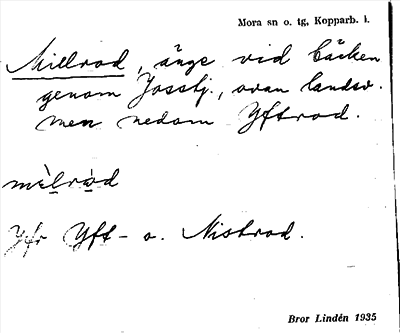 Mora sn o. tg, Kopparb. l.
Millrod, änge vid bäcken
genom Josstj., ovan landsv.
men nedom Yftrod.
mèlrò̤d
Jfr Yft- o. Nistrod.
Bror Lindén 1935